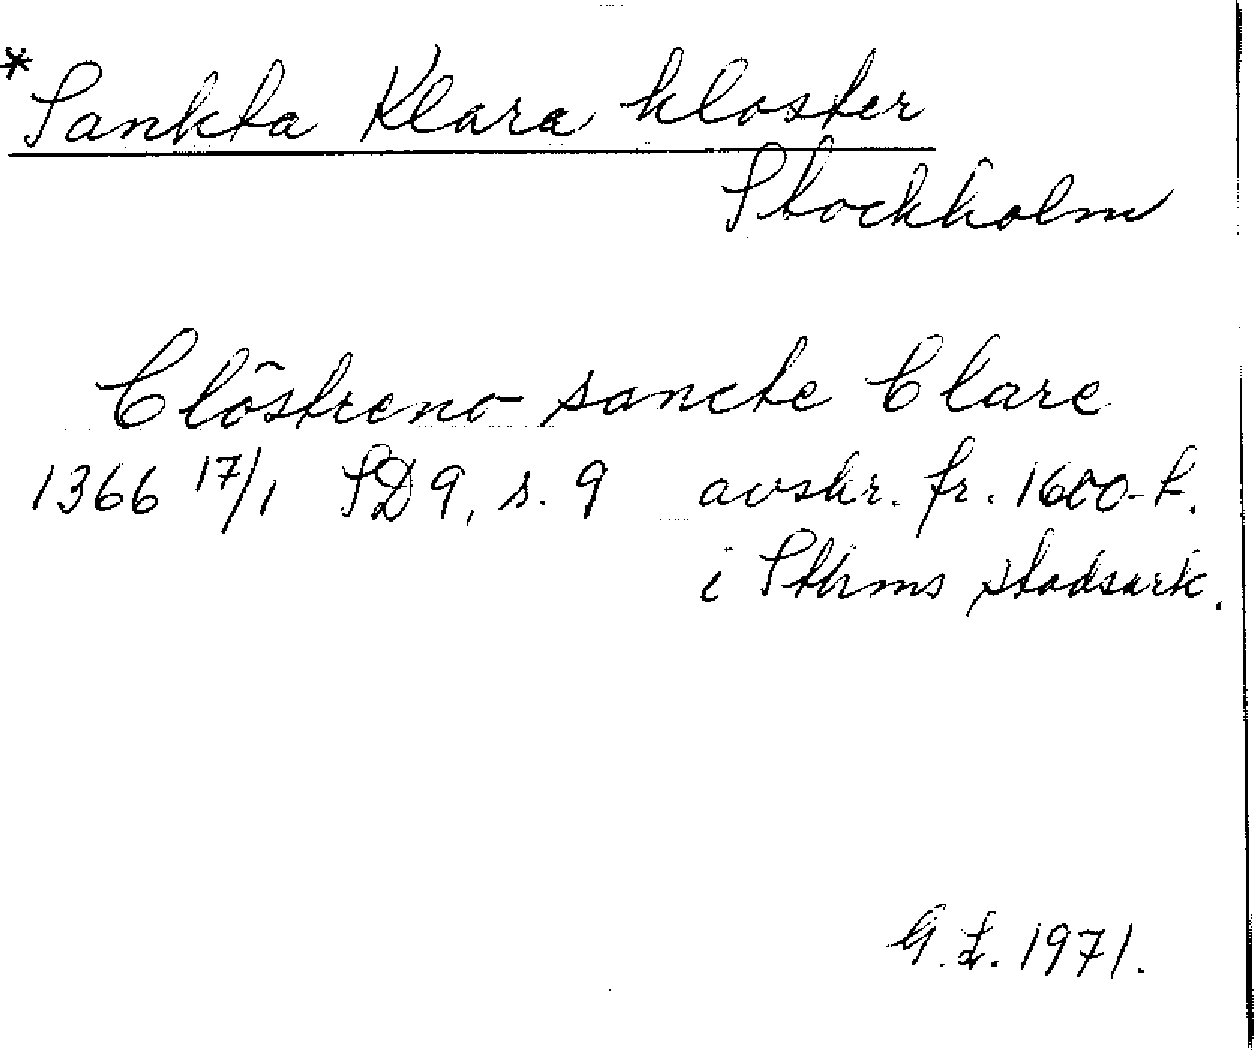 *Sankta Klara kloster
Stockholm
Clöstreno sancte Clare
1366 17/1 SD 9, s. 9 avskr. fr. 1600-t.
i Sthms stadsark.
G. L. 1971.